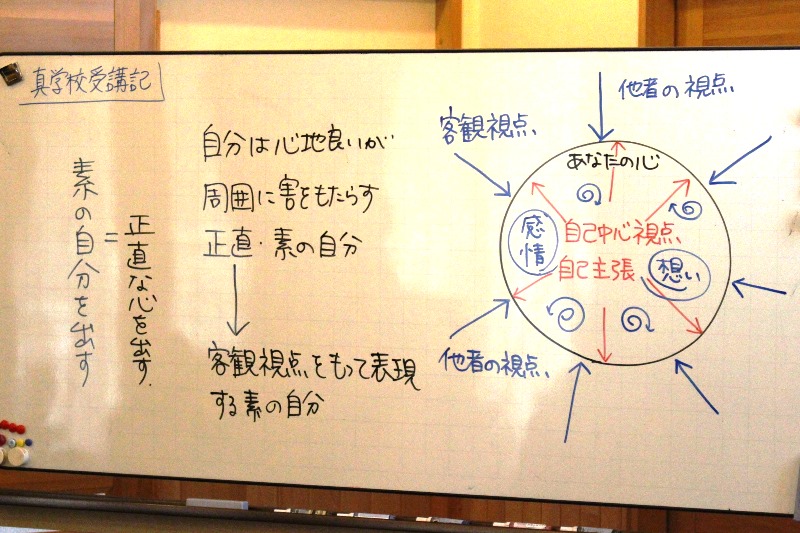 真学校受講記
素の自分を出す
=
正直な心を出す.
自分は心地良いが
周囲に害をもたらす
正直・素の自分
客観視点をもって表現
する素の自分
他者の視点
客観視点
あなたの心
感情
自己中心視点
自己主張
想い
他者の視点